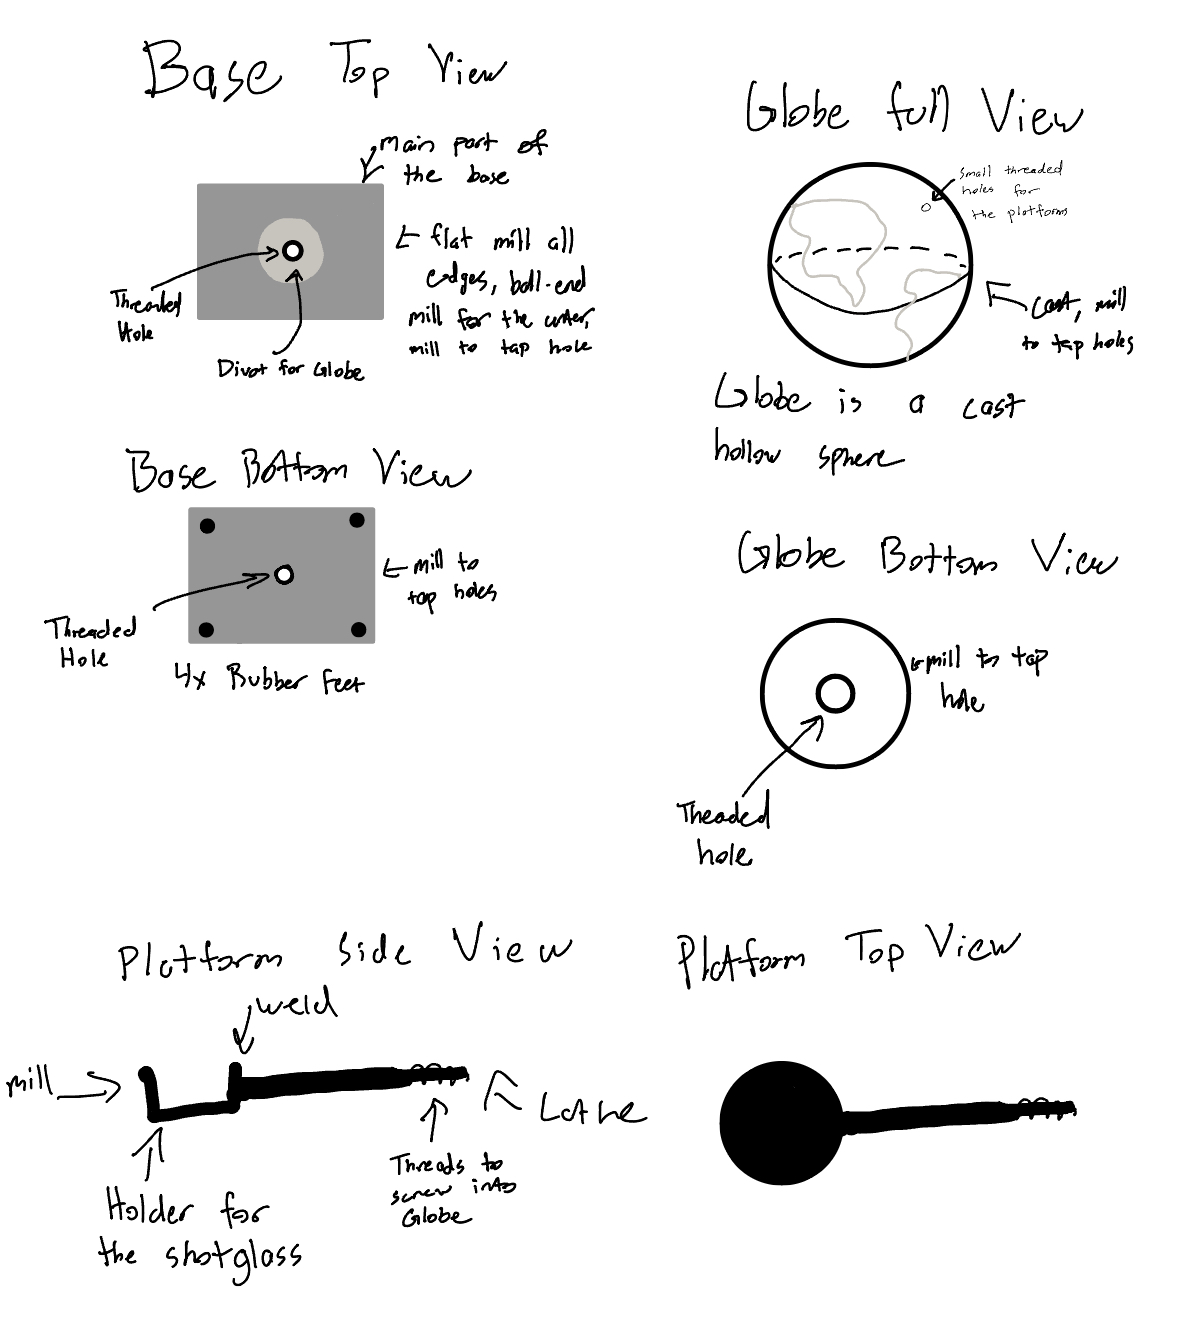 Base Top View
main part of
the base
← flat mill all
edges, ball-end
mill for the center,
mill to tap hole
Threaded
Hole
Divot for Globe
Globe full View
Small threaded
holes for
the platforms
Cast, mill
to tap holes
Globe is a cast
hollow sphere
Base Bottom View
mill to
tap holes
Threaded
Hole
4x Rubber Feet
Globe Bottom View
mill to tap
hole
Theaded
hole
Platform Side View
weld
mill
Lathe
Threads to
screw into
Globe
Holder for
the shotglass
Platform Top View